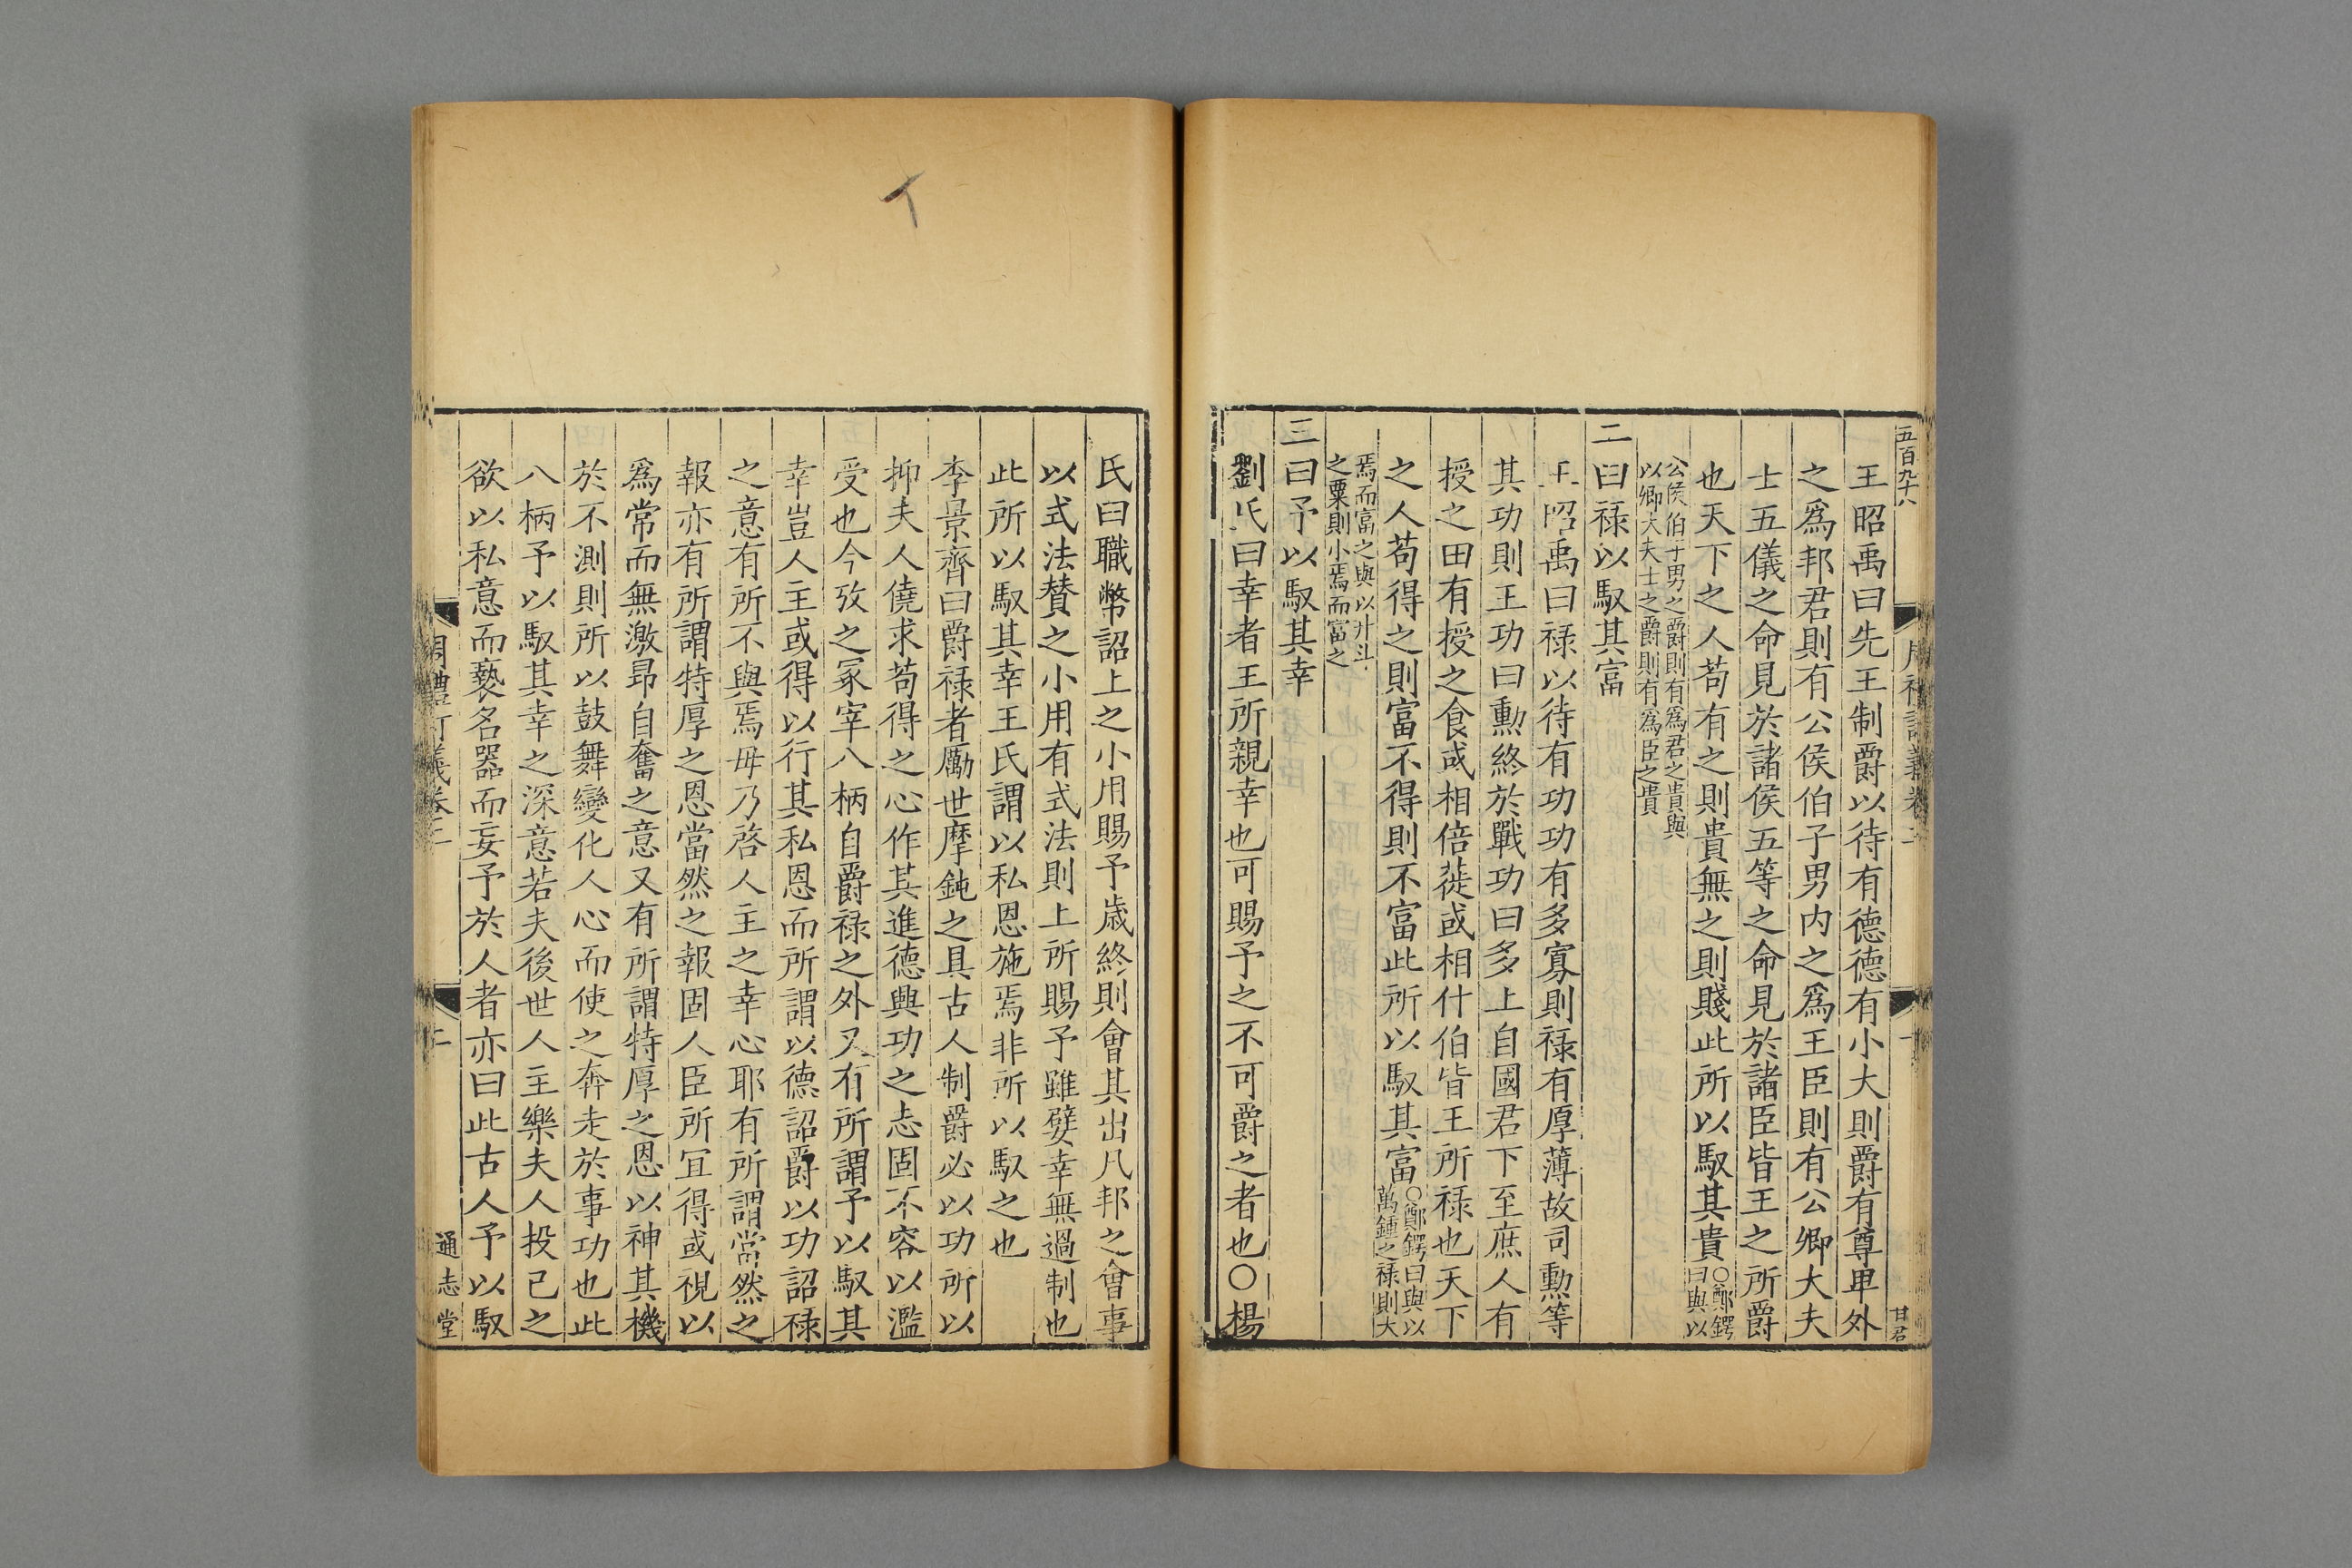 五百九十八
甘君
王昭禹曰先王制爵以待有德德有小大則爵有尊卑外
之爲邦君則有公侯伯子男内之爲王臣則有公卿大夫
士五儀之命見於諸侯五等之命見於諸臣皆王之所爵
也天下之人苟有之則貴無之則賤此所以馭其貴○鄭鍔曰與以
公侯伯子男之爵則有爲君之貴與
以卿大夫士之爵則有爲臣之貴
二曰禄以馭其富
王昭禹曰禄以待有功功有多寡則禄有厚薄故司勳等
其功則王功曰勳終於戰功曰多上自國君下至庶人有
授之田有授之食或相倍蓰或相什伯皆王所禄也天下
之人苟得之則富不得則不富此所以馭其富○鄭鍔曰與以萬鍾之禄則大
焉而富之與以升斗
之粟則小焉而富之
三曰予以馭其幸
劉氏曰幸者王所親幸也可賜予之不可爵之者也○楊
氏曰職幣詔上之小用賜予歳終則會其出凡邦之會事
以式法賛之小用有式法則上所賜予雖嬖幸無過制也
此所以馭其幸王氏謂以私恩施焉非所以馭之也
李景齊曰爵禄者厲世摩鈍之具古人制爵必以功所以
抑夫人僥求苟得之心作其進德興功之志固不容以濫
受也今攷之冢宰八柄自爵禄之外又有所謂予以馭其
幸豈人主或得以行其私恩而所謂以德詔爵以功詔禄
之意有所不與焉毋乃啓人主之幸心耶有所謂當然之
報亦有所謂特厚之恩當然之報固人臣所宜得或視以
爲常而無激昻自奮之意又有所謂特厚之恩以神其機
於不測則所以鼓舞變化人心而使之奔走於事功也此
八柄予以馭其幸之深意若夫後世人主樂夫人投己之
欲以私意而褻名器而妄予於人者亦曰此古人予以馭
周禮訂義卷二
二
通志堂